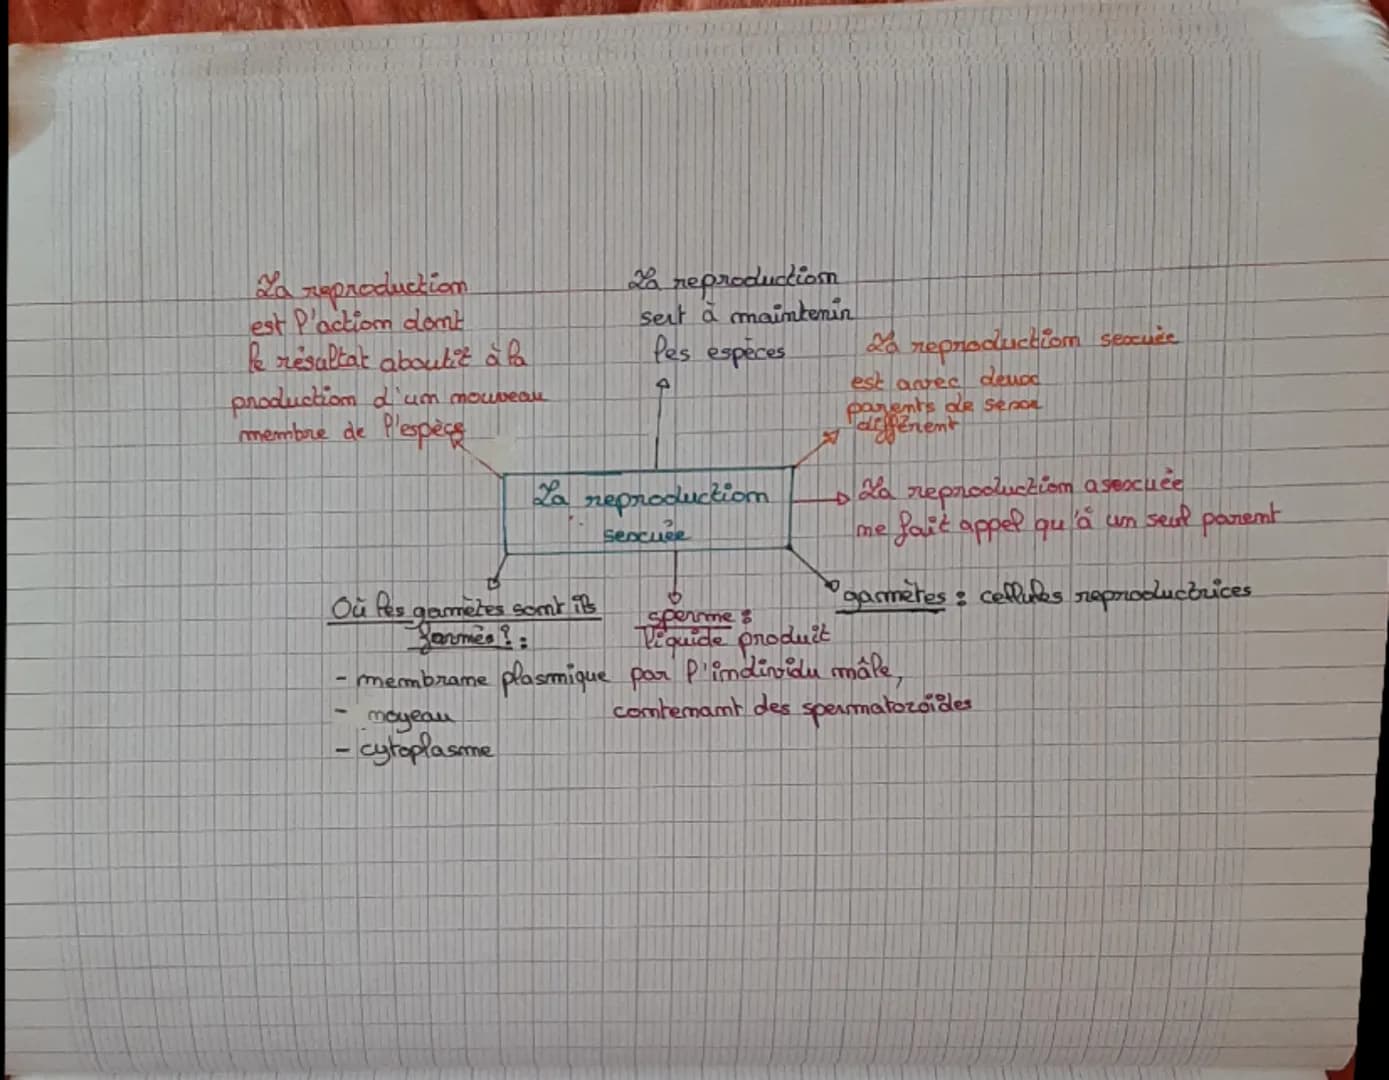 La reproduction
est l'action dont
le résultat aboutit à la
production d'un nouveau
membre de l'espèce
La reproduction
sert à maintenir
les espèces
La reproduction sexuée
est avec deux
parents de sexe
différent
La reproduction
sexuée
La reproduction asexuée
ne fait appel qu'à un seul parent
gamètes : cellules reproductrices
Où les gamètes sont ils
formés ? :
- membrane plasmique
- noyeau
- cytoplasme
sperme :
liquide produit
par l'individu mâle,
contenant des spermatozoïdes